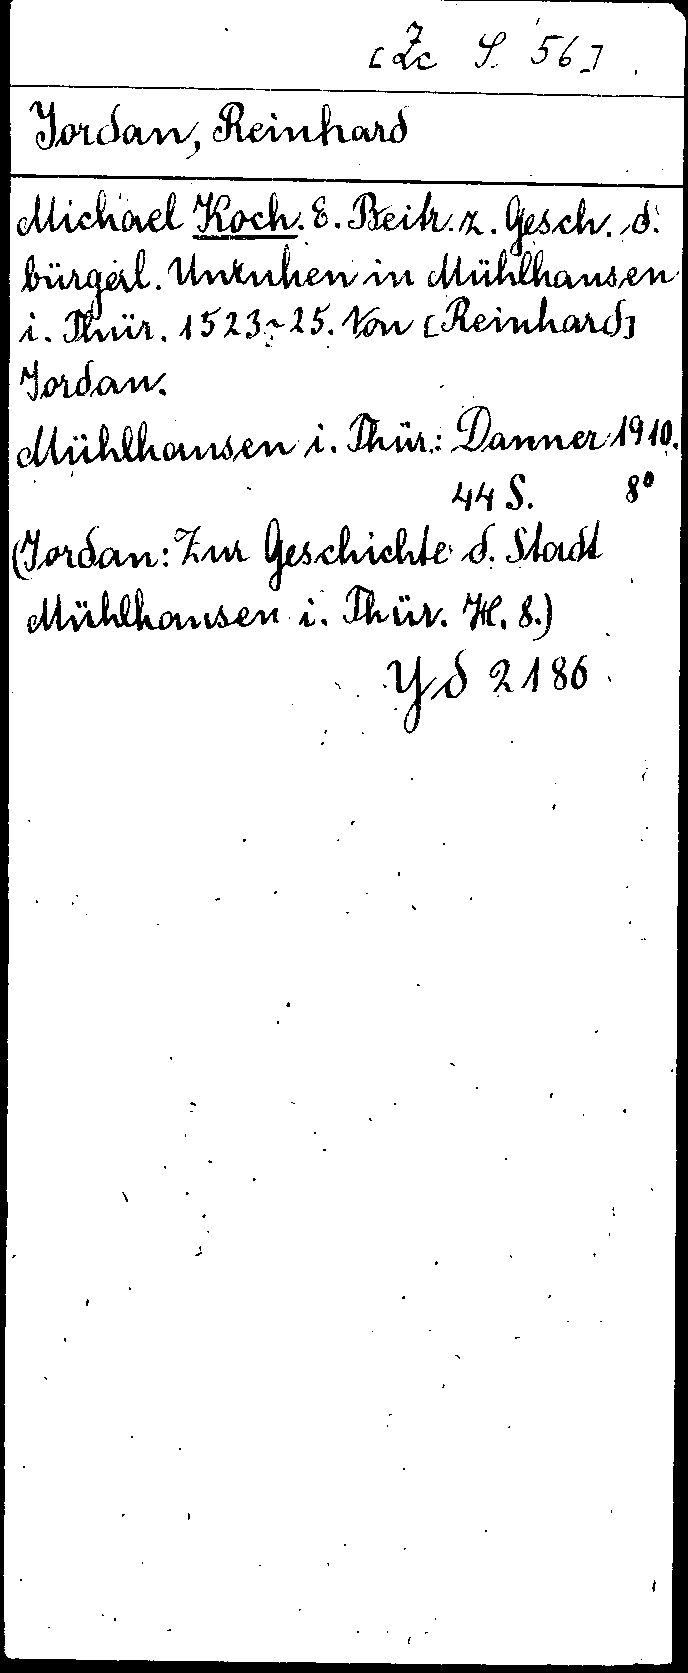 [Zc S. 56]
Jordan, Reinhard
Michael Koch. E. Beitr. z. Gesch. d.
bürgerl. Unruhen in Mühlhausen
i. Thür. 1523-25. Von [Reinhard]
Jordan.
Mühlhausen i. Thür.: Danner 1910.
44 S. 8°
(Jordan: Zur Geschichte d. Stadt
Mühlhausen i. Thür. H. 8.)
Yd 2186